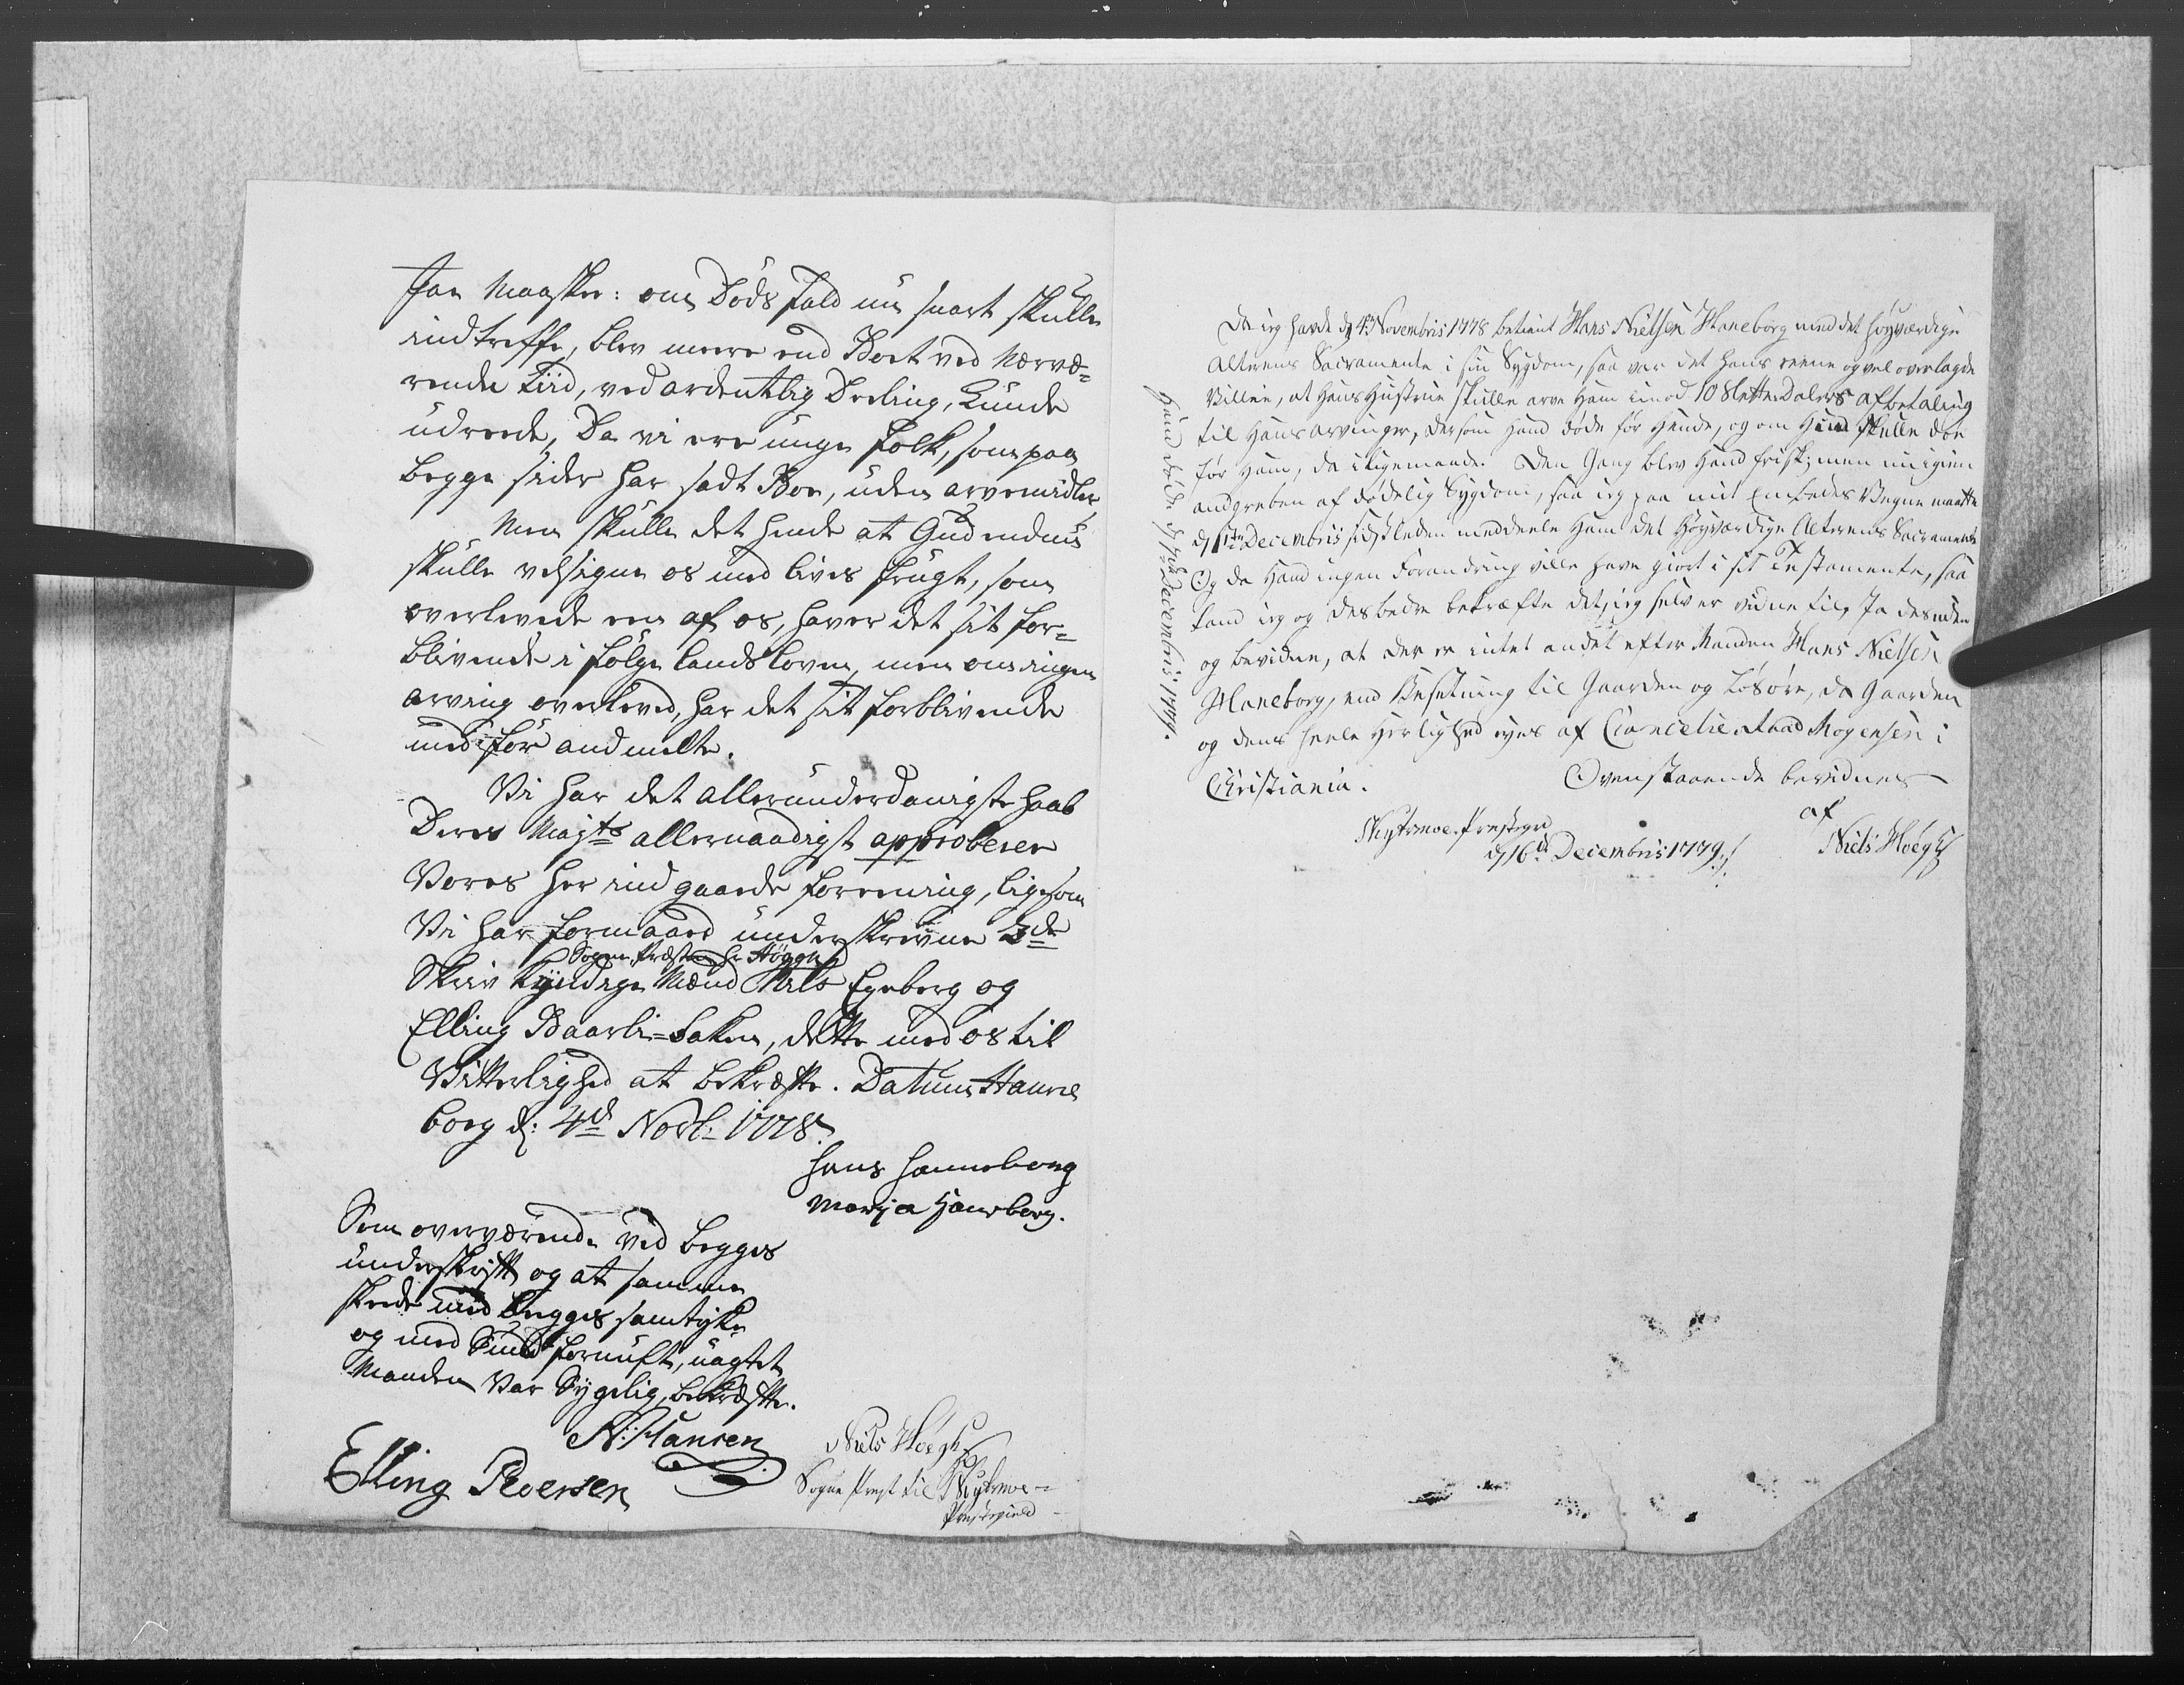 Jaa Maaskee: om Døds fald nu snart skulle
indtreffe, blev meere end Boet ved Nærvæ-
rende Tiid, ved ordentlig Deeling, kunde
udreede, Da vi ere unge folk, som paa
begge sider har sadt Boe, uden arvemidler
Men skulle det hende at Gud endnu
skulle velsigne os med livs frugt, som
overlevede een af os, haver det sit for-
blivende i følge landsloven, men om ingen
arving overleved, har det sit forblivende
med før andmelte.
Vi har det allerunderdanigste haab
Deres Majts allernaadigst approberer
Vores her indgaaede foreening, ligesom
Vi har formaaed underskrevne 3de
Sogne Præsten Hr Høegh
Skriv kyndige Mænd Niels Egeberg og
Elling Baarli-bakken, dette med os til
Vitterlighed at bekræfte. Datum Hanne
borg d: 4d Novb: 1778.
Hans Hanneborg
Marja Haneborg.
Som overværende ved begges
underskrift og at samme
skede med begges samtykke
og med Sund fornuft, uagtet
Manden Var Sygelig, bekræfte.
N: Hansen
Elling Pedersen
Niels Høegh
Sogne Prest til
Præstegield
Da jeg havde d 4de Novembris 1778 betient Hans Nielsen Haneborg med det høyværdige
Alterens Sacramente i sin Sygdom, saa var det hans reene og vel overlagde
Villie, at hans Hustrue skulle arve ham imod 10 Slette Dalers afbetaling
til hans arvinger, dersom hand døde før hende, og om Hund skulle døe
før ham, da ligemaade. Den Gang blev hand frisk; men nu igien
andgreben af dødelig Sygdom, saa jeg paa mit Embedes Vegne maatte
d 1ste Decembris sidstleden meddeele ham det Høyværdige Alterens Sacramente
Og da hand ingen Forandring ville have giort i sit Testamente, saa
kand jeg og desbedre bekræfte det, jeg selv er vidne til, Ja desuden
og bevidne, at der er intet andet efter Manden Hans Nielsen
Haneborg, end Besetning til Gaarden og Løsøre, da Gaarden
og dens heele herlighed eyes af Cancelie Raad Mogensen i
Christiania.
Ovenstaaende bevidnes
af
Niels Høegh
d 16de Decembris 1779
Hand døde d Decembris 1779.